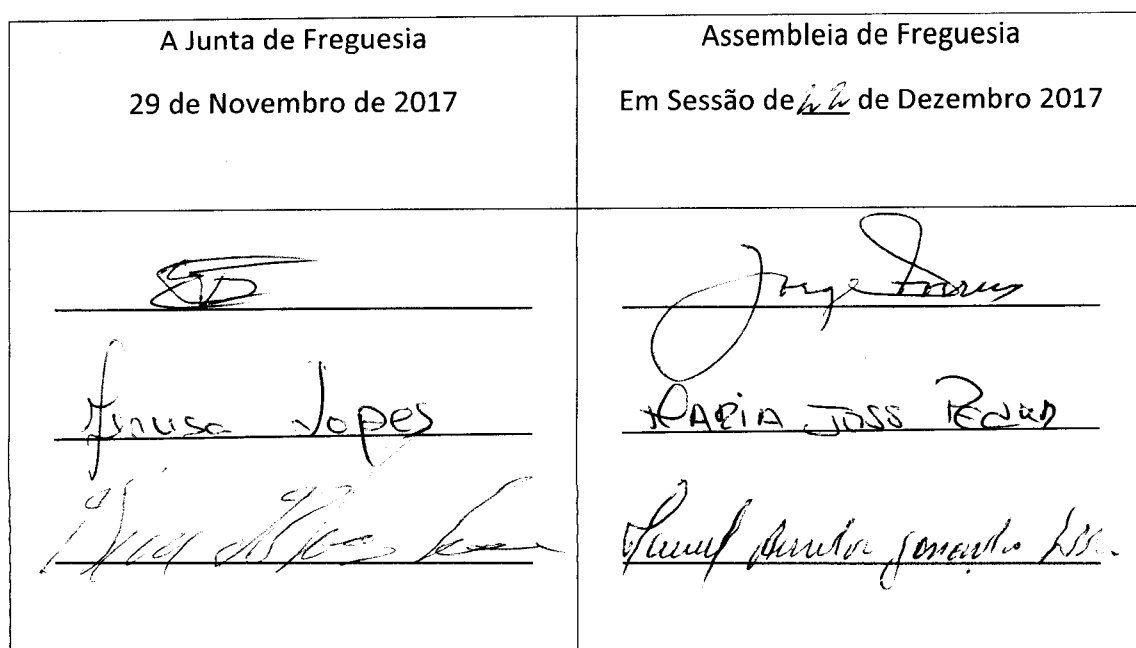 A Junta de Freguesia
29 de Novembro de 2017
Assembleia de Freguesia
Em Sessão de 22 de Dezembro 2017
Jorge
Lopes
MARIA JOSS
Manuel